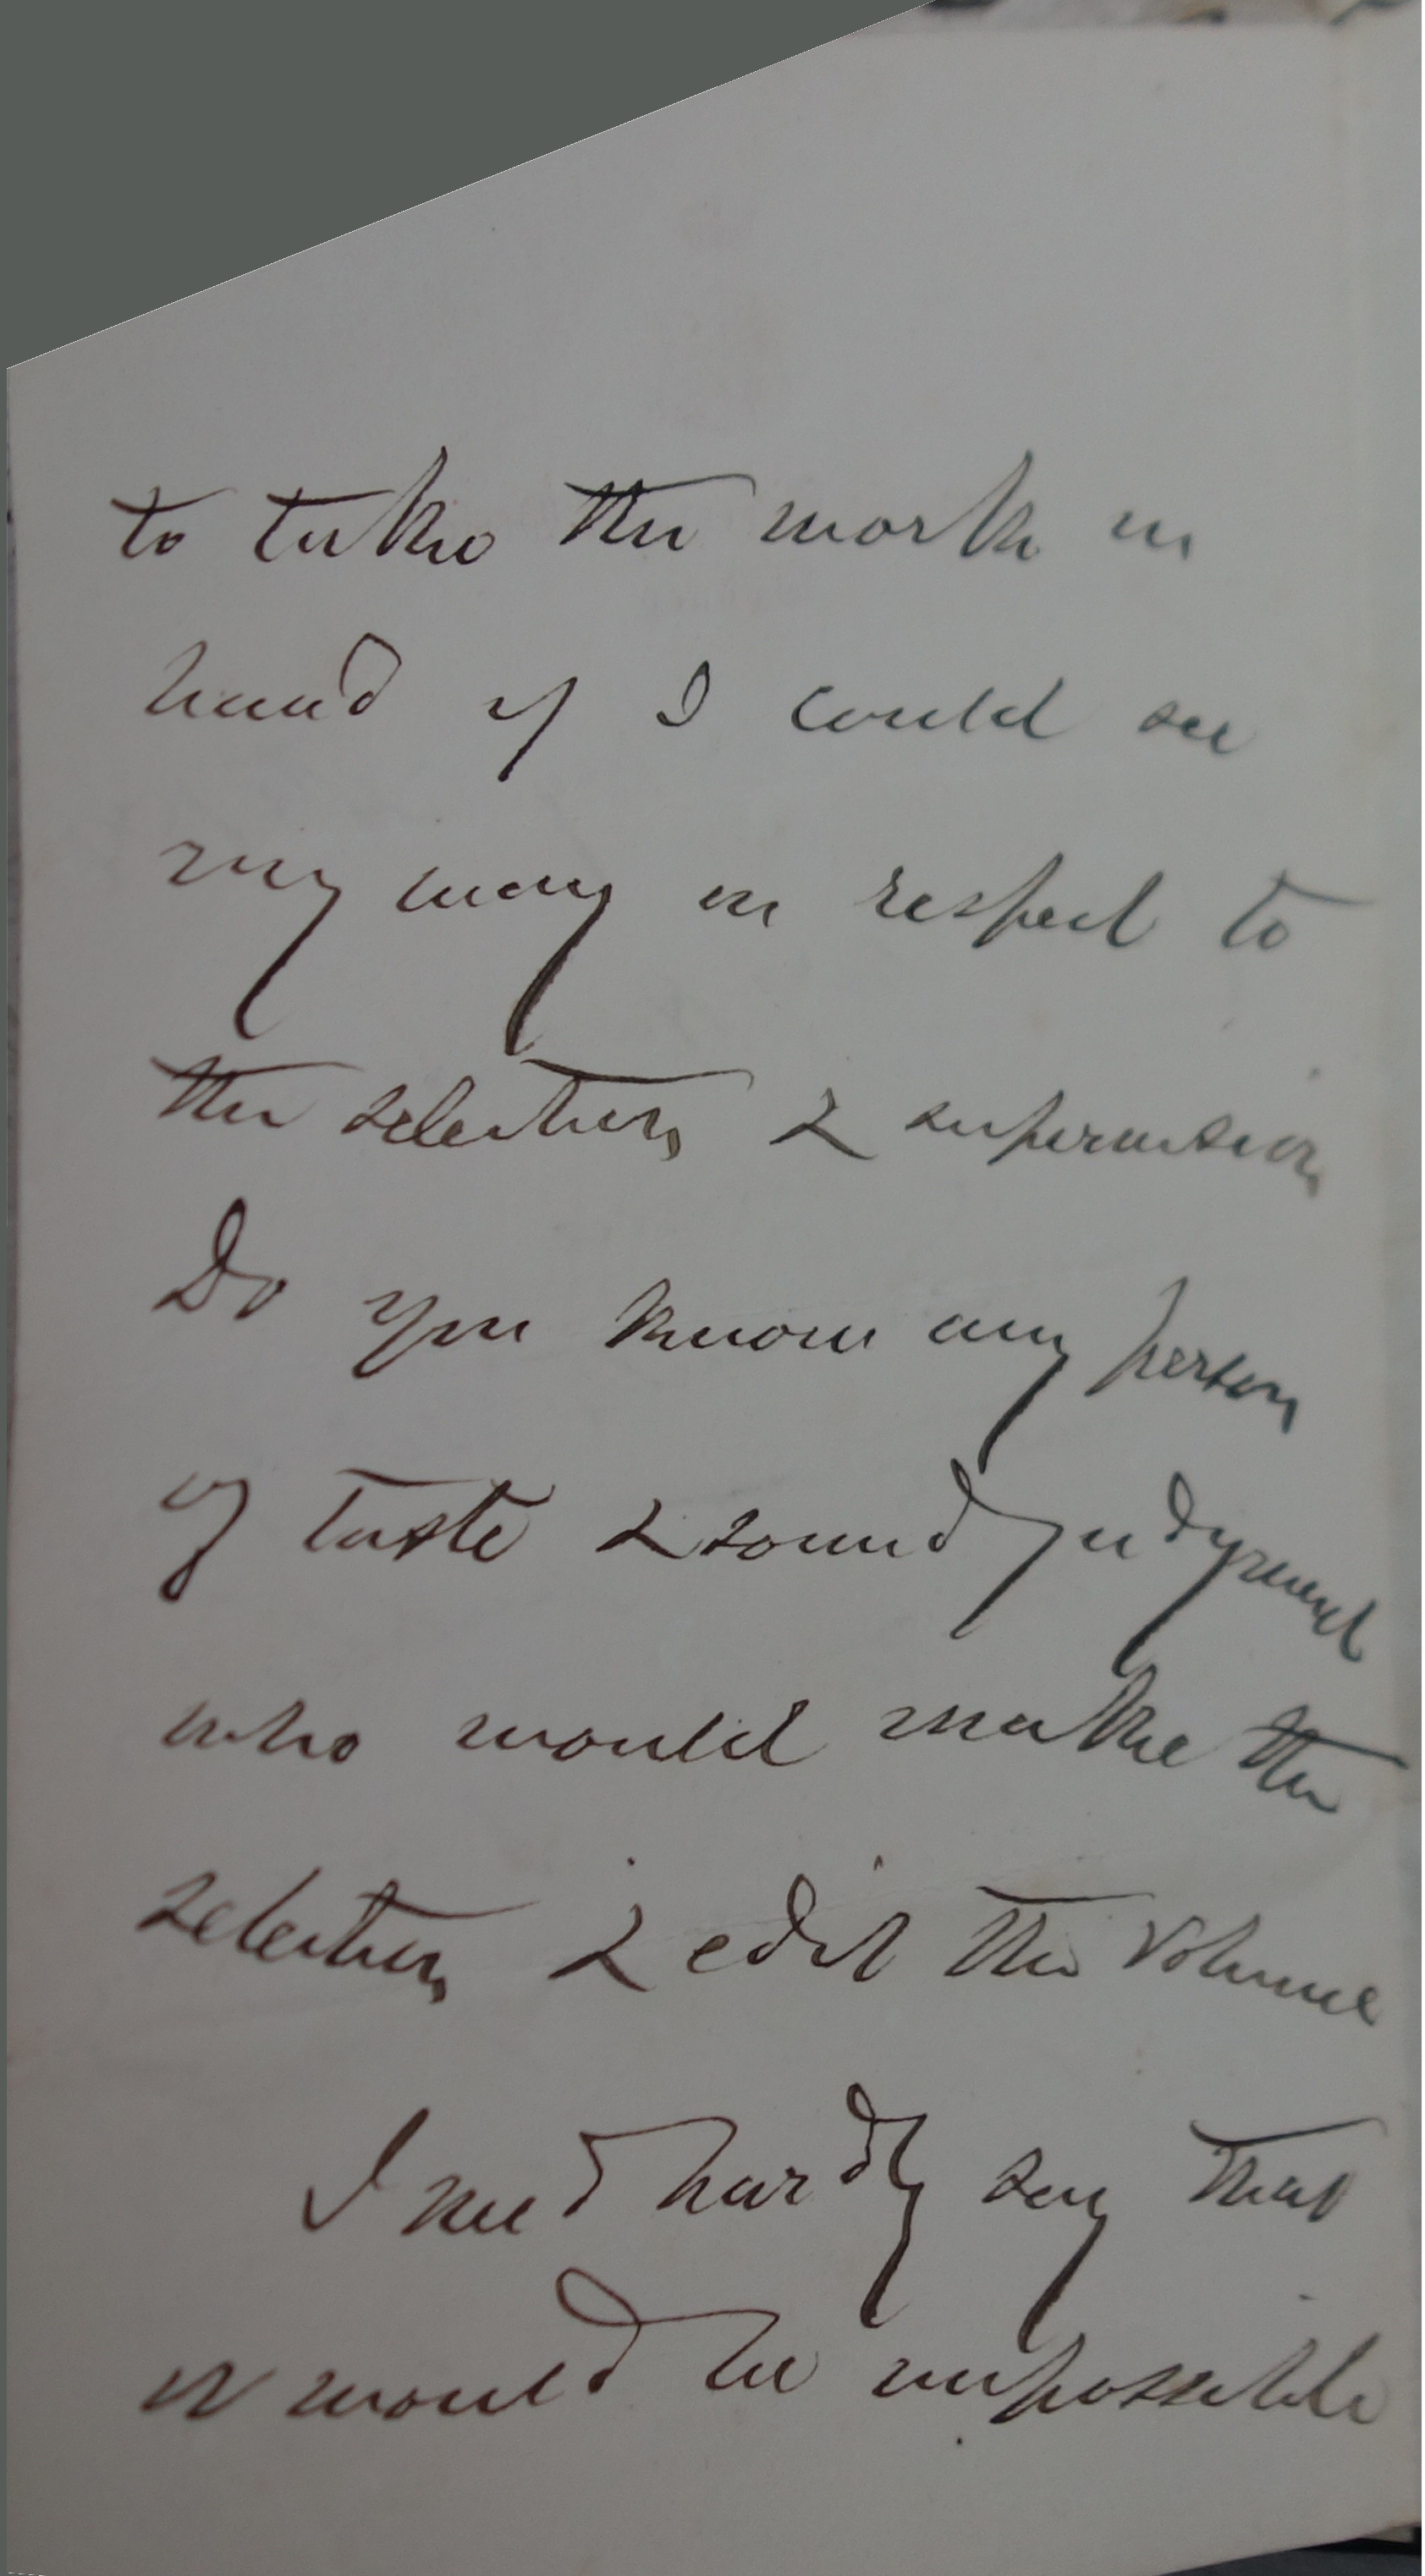 to take the work in
hand if I could see
my way in respect to
the selection & supervision
Do you know any person
of taste & sound judgment
who would make the
selection & edit the volume
I need hardly say that
it would be impossible